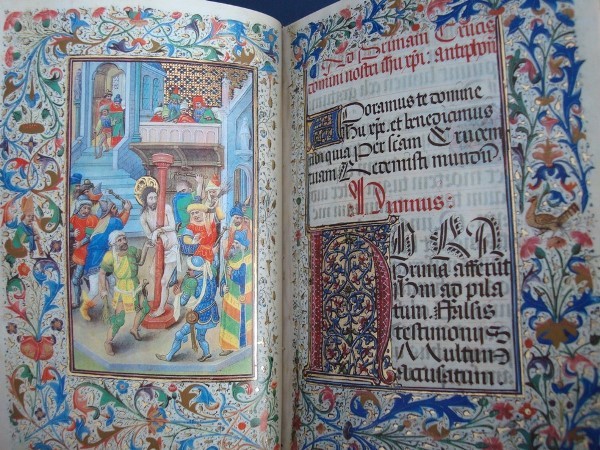 Ad Primam Crucis
domini nostri ihu xpi: antiphon
Adoramus te domine
Ihu xpe. et benedicimus
tibi quia Per scam Crucem
tuam Redemisti mundū
Himnus:
HORA
Prima afferūt
Ihm ad pila
tum. Falsis
testimoniis
Multum
accusatum